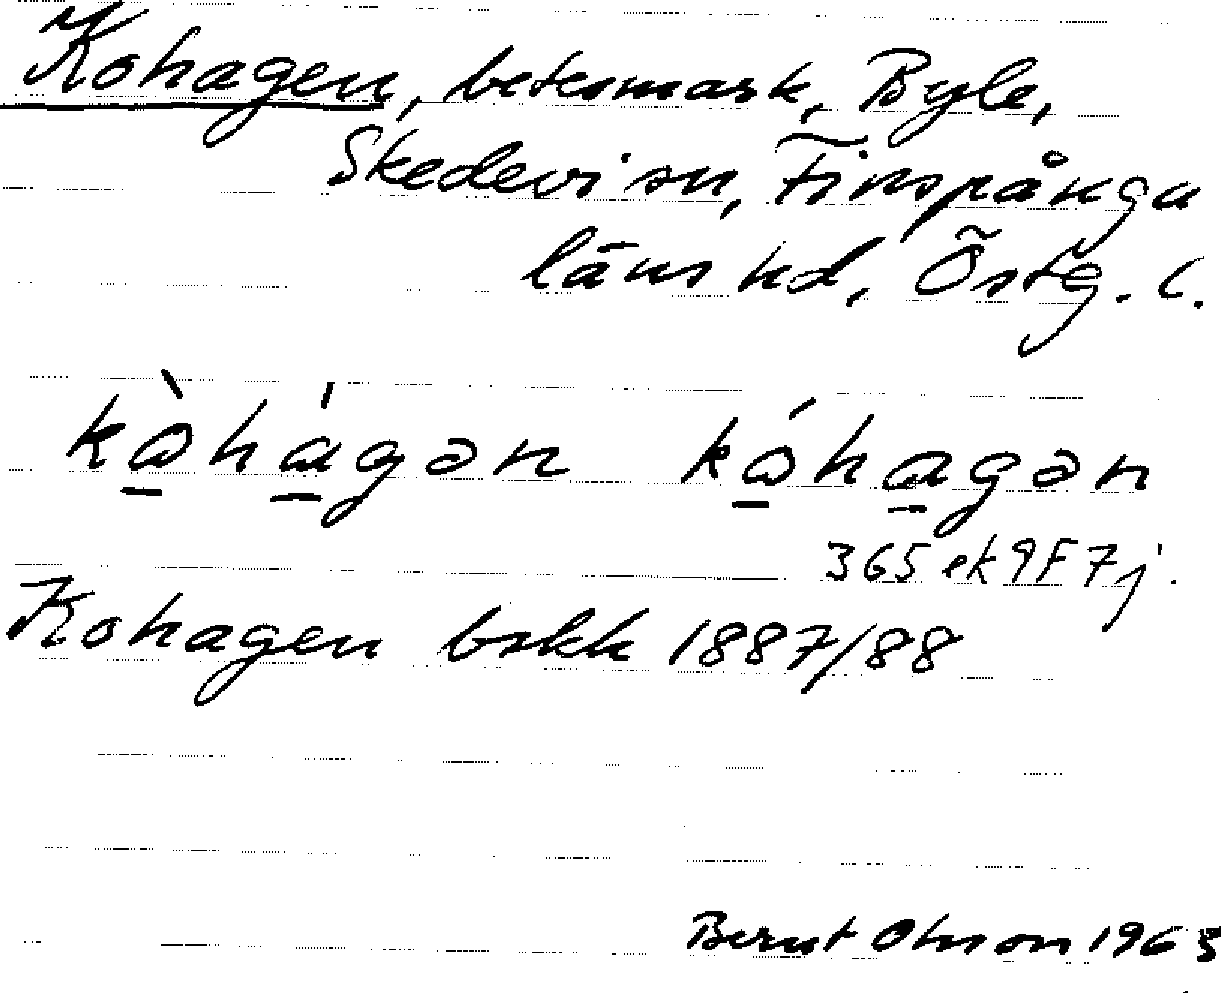 Kohagen, betesmark, Byle,
Skedevi sn, Finspånga
läns hd, Östg. l.
kὼhágən kώhagən
365 ek 9F 7j.
Kohagen bskk 1887/88
Bernt Olsson 1963